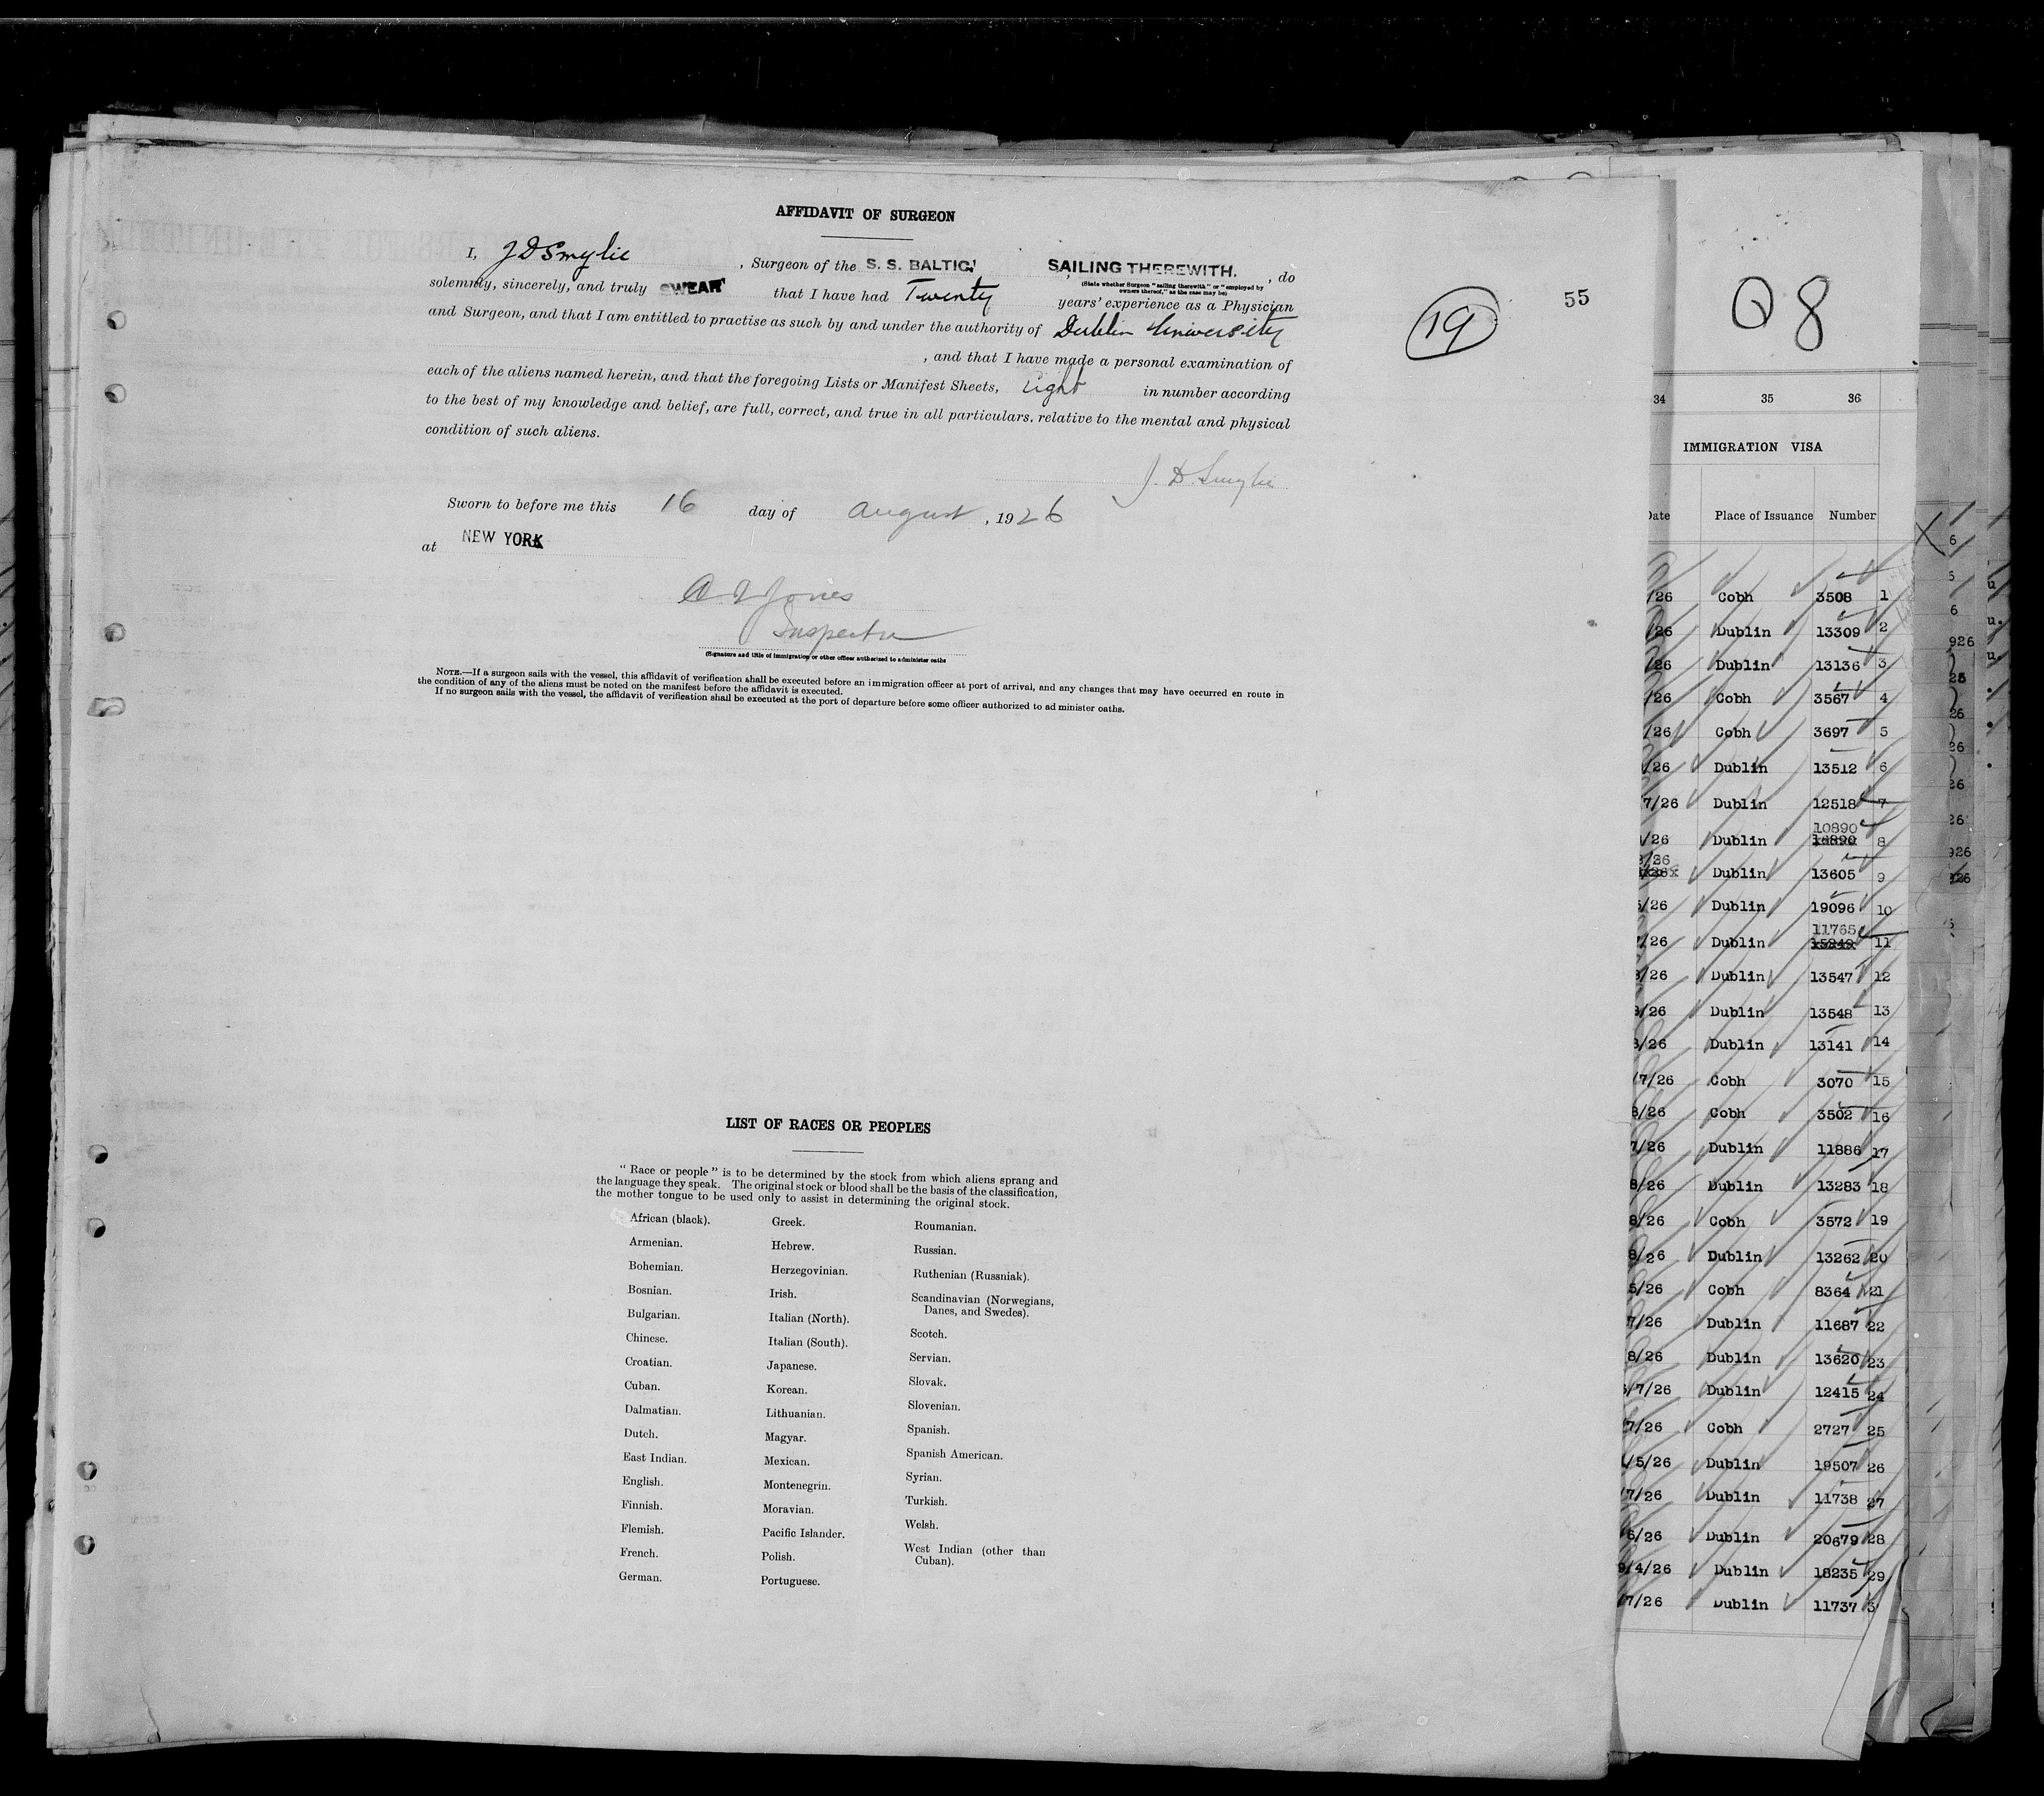 AFFIDAVIT OF SURGEON
I, J D Smylie , Surgeon of the S. S. BALTIC SAILING THEREWITH. , do
(State whether Surgeon "sailing therewith" or "employed by
owners thereof," as the case may be)
solemnly, sincerely, and truly SWEAR that I have had Twenty years' experience as a Physician
and Surgeon, and that I am entitled to practise as such by and under the authority of Dublin University
, and that I have made a personal examination of
each of the aliens named herein, and that the foregoing Lists or Manifest Sheets, eight in number according
to the best of my knowledge and belief, are full, correct, and true in all particulars. relative to the mental and physical
condition of such aliens.
J. D. Smylie
Sworn to before me this 16 day of August , 1926
at NEW YORK
Jones
Inspector
(Signature and title of immigration or other officer authorized to administer oaths
NOTE.—If a surgeon sails with the vessel, this affidavit of verification shall be executed before an immigration officer at port of arrival, and any changes that may have occurred en route in
the condition of any of the aliens must be noted on the manifest before the affidavit is executed.
If no surgeon sails with the vessel, the affidavit of verification shall be executed at the port of departure before some officer authorized to ad minister oaths.
19
55
LIST OF RACES OR PEOPLES
"Race or people" is to be determined by the stock from which aliens sprang and
the language they speak. The original stock or blood shall be the basis of the classification,
the mother tongue to be used only to assist in determining the original stock.
African (black).
Armenian.
Bohemian.
Bosnian.
Bulgarian.
Chinese.
Croatian.
Cuban.
Dalmatian.
Dutch.
East Indian.
English.
Finnish.
Flemish.
French.
German.
Greek.
Hebrew.
Herzegovinian.
Irish.
Italian (North).
Italian (South).
Japanese.
Korean.
Lithuanian.
Magyar.
Mexican.
Montenegrin.
Moravian.
Pacific Islander.
Polish.
Portuguese.
Roumanian.
Russian.
Ruthenian (Russniak).
Scandinavian (Norwegians,
Danes, and Swedes).
Scotch.
Servian.
Slovak.
Slovenian.
Spanish.
Spanish American.
Syrian.
Turkish.
Welsh.
West Indian (other than
Cuban).
98
34 35 36
IMMIGRATION VISA
Date Place of Issuance Number
/26 Cobh 3508 1
/26 Dublin 13309 2
/26 Dublin 13136 3
/26 Cobh 3567 4
/26 Cobh 3697 5
/26 Dublin 13512 6
7/26 Dublin 12518 7
10890
/26 Dublin 8
8/26
Dublin 13605 9
/26 Dublin 19096 10
11765
/26 Dublin 11
8/26 Dublin 13547 12
8/26 Dublin 13548 13
8/26 Dublin 13141 14
/7/26 Cobh 3070 15
8/26 Cobh 3502 16
7/26 Dublin 11886 17
8/26 Dublin 13283 18
8/26 Cobh 3572 19
8/26 Dublin 13262 20
5/26 Cobh 8364 21
7/26 Dublin 11687 22
8/26 Dublin 13620 23
/7/26 Dublin 12415 24
7/26 Cobh 2727 25
/5/26 Dublin 19507 26
/7/26 Dublin 11738 27
6/26 Dublin 20679 28
9/4/26 Dublin 18235 29
/7/26 Dublin 11737 3